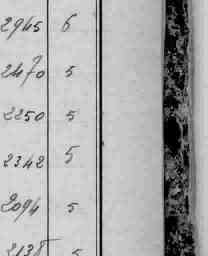 2965 6
2470 5
2250 5
2342 5
2094 5
2138 5